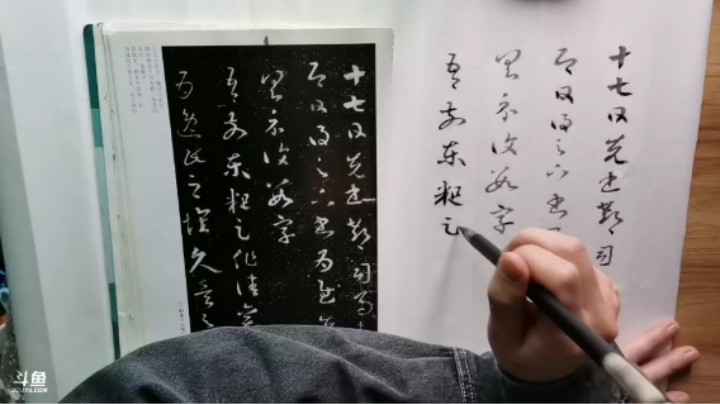 十七日先書郗司馬
即日得足下書為慰
具示復數字
吾前東粗足作佳觀
為逸民之懷久矣足
十七日先書郗司
即日得足下書
具示復數字
吾前東粗足
斗鱼
DOUYU.COM